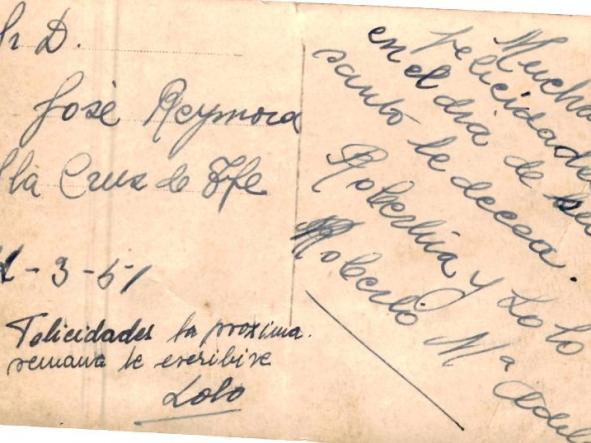 Sr D.
José Reymora
Sta Cruz de Tfe
-3-51
Felicidades la proxima.
semana te escribire
Lolo
Mucha
felicidades
en el dia de su
santo le decea.
Robertina y Lolo
Roberto Mª Adel